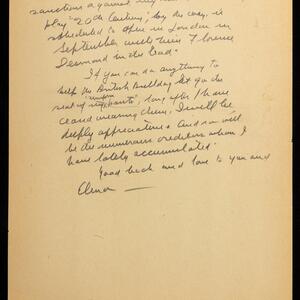 sanctions against my
play "20th Century", by the way, is
scheduled to open in London in
September with Florence
Desmond in the lead.
If you can do anything to
help the British Bulldog let go the
seat of my pants, long after I have
ceased wearing them, I will be
deeply appreciative. And so will
be the numerous creditors whom I
have lately accumulated.
Good luck and love to you and